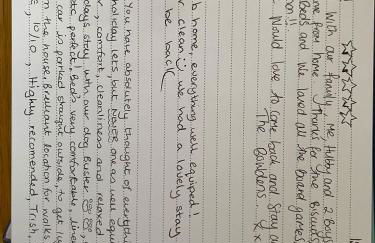 ☆☆☆☆☆
with our family, me Hubby and 2 Boys
from home. Thanks for the Biscuits
Beds and we loved all the Board games
Would love to come back and stay
The Bowdens xx
home, everything well equiped!
clean we had a lovely stay
be back
You have absolutely thought of
holiday lets, but NEVER one as well
, comfort, cleanliness and relaxed
days stay with our dog Buster
perfect, Bed's very comfortable,
car is parked straight outside, to get
the house, Brilliant location for walks
10/10, Highly recomended, Trish,